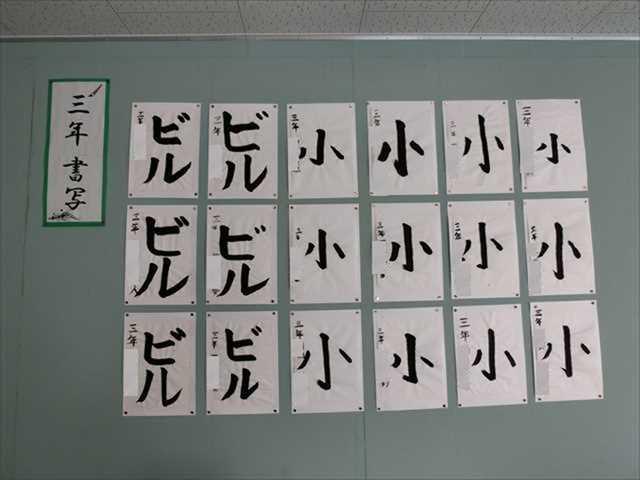 三年書写
ビル
三年
ビル
三年
小
三年
小
三年
小
三年
小
三年
ビル
三年
ビル
三年
小
三年
小
三年
小
三年
小
三年
ビル
三年
ビル
三年
小
三年
小
三年
小
三年
小
三年